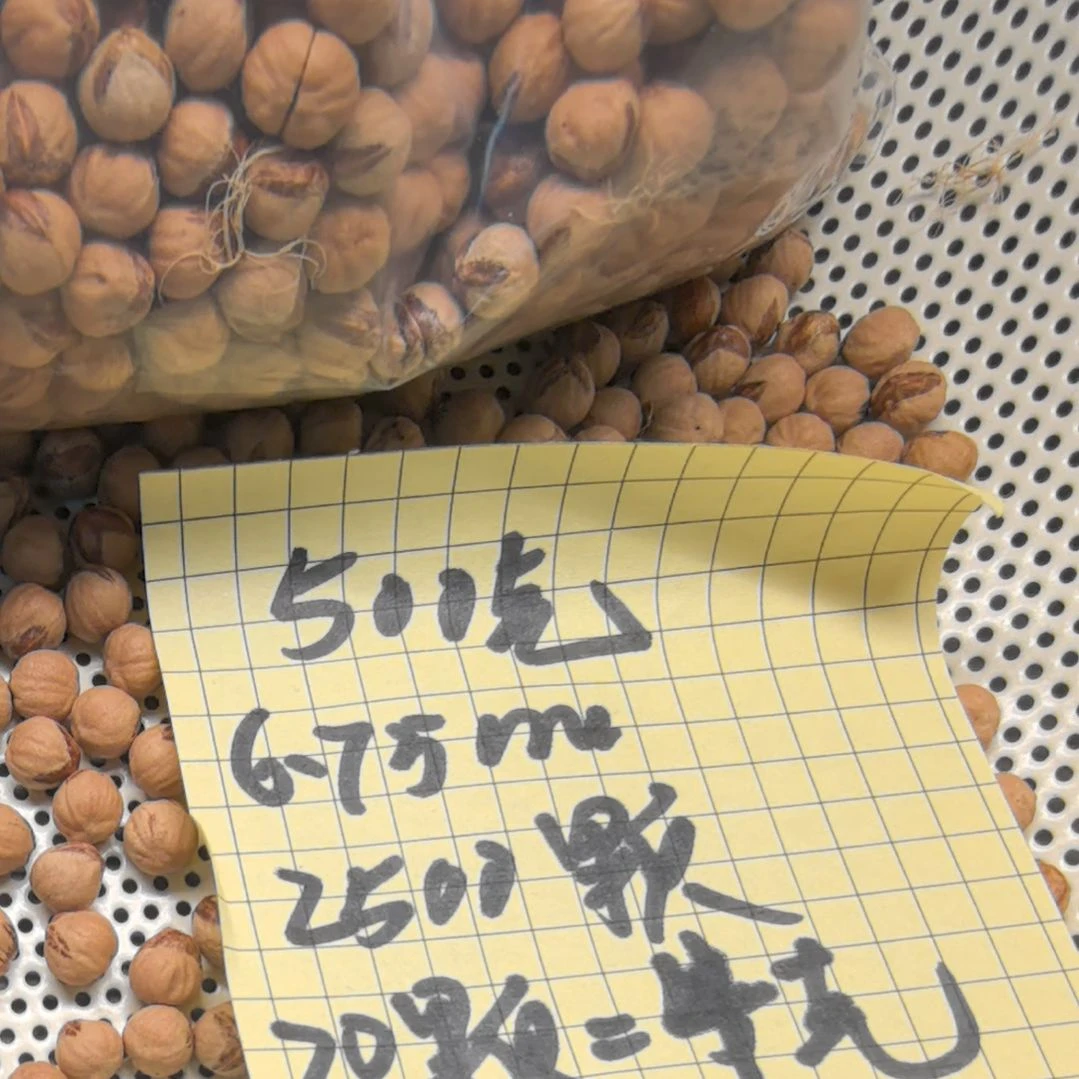 500克
6-75mm
2500颗
20颗=4克